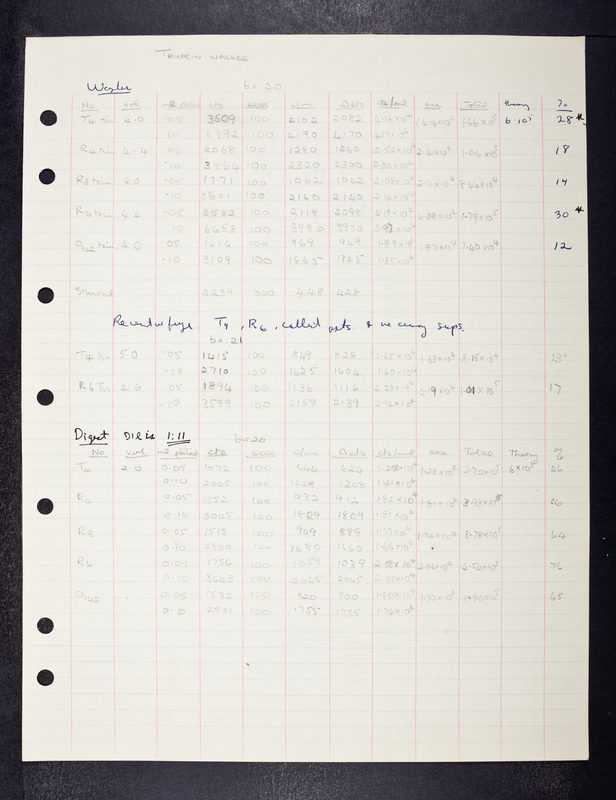 TRYPSIN WASHES
Washes b=20
No. vol ml plated cts secs c/m Δcts cts/ml ave Total theory %
T4 4.0 .05 3509 100 2102 2082 4.16×10⁴ 1.66×10⁵ 6·10⁵ 28*
.10 6992 100 4190 4170 4.17×10⁴
R4 4.4 .05 2068 100 1280 1260 2.52×10⁴ 2.41×10⁴ 1.06×10⁵ 18
.10 3864 100 2320 2300 2.30×10⁴
R3 4.0 .05 1771 100 1062 1042 2.08×10⁴ 2.11×10⁴ 8.44×10⁴ 14
.10 3601 100 2160 2140 2.14×10⁴
R6 4.4 .05 3582 100 2118 2098 4.19×10⁴ 4.08×10⁴ 1.79×10⁵ 30*
.10 6653 100 3990 3970 3.97×10⁴
O142 4.0 .05 1616 100 969 949 1.89×10⁴ 1.87×10⁴ 7.40×10⁴ 12
.10 3109 100 1865 1845 1.85×10⁴
Standard 2239 300 448 428
Recentrifuge T4, R6, collect & sups.
b=21
T4 5.0 .05 1415 100 849 828 1.65×10⁴ 1.63×10⁴ 8.15×10⁴ 13
.10 2710 100 1625 1604 1.60×10⁴
R6 .05 1894 100 1136 1116 2.23×10⁴ 17
.10 3599 100 2159 2139 2.14×10⁴
Digest Dil is 1:11 b=20
No vol ml plated cts secs c/m Δcts cts/ml ave Total Theory %
T4 2.0 0.05 1072 100 644 624 1.25×10⁴ 6×10⁵ 46
0.10 2045 100 1228 1208 1.21×10⁴
R4 0.05 1552 100 932 912 1.82×10⁴ 1.81×10⁴ 3.98×10⁵ 66
0.10 3045 100 1829 1809 1.81×10⁴
R3 0.05 1513 100 909 889 1.77×10⁴ 3.78×10⁵ 64
0.10 2800 100 1680 1660 1.66×10⁴
R6 0.05 1756 100 1059 1039 2.08×10⁴ 2.06×10⁴ 4.54×10⁵ 76
0.10 3443 100 2065 2045 2.05×10⁴
O142 0.05 1532 100 920 900 1.80×10⁴ 1.77×10⁴ 3.90×10⁵ 65
0.10 2931 100 1755 1735 1.74×10⁴